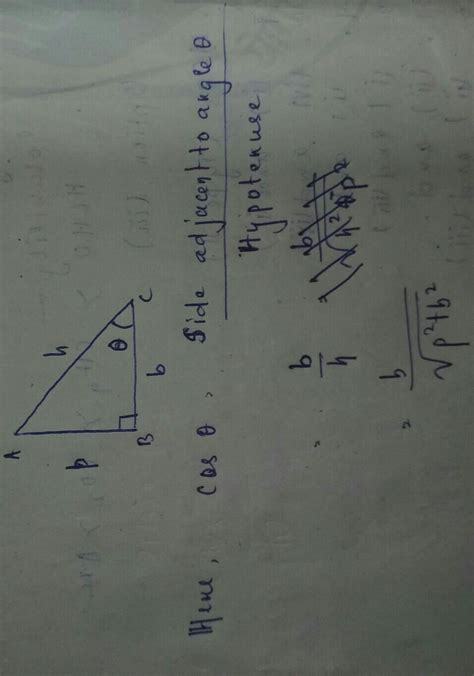 A
h
p
θ
B
b
C
Here, cos θ = Side adjacent to angle θ
Hypotenuse
= b
h
= b
√p²+b²